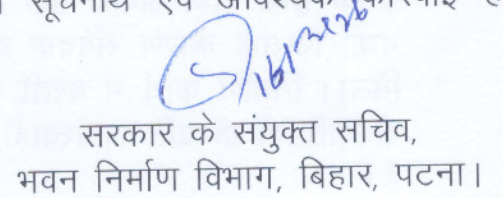 सूचनार्थ एवं आवश्यक कार्रवाई
सरकार के संयुक्त सचिव,
भवन निर्माण विभाग, बिहार, पटना।